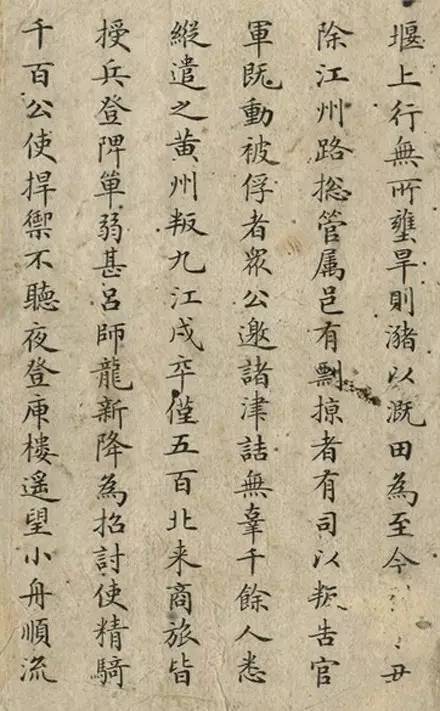 堰上行無所壅旱則瀦以溉田為至今
除江州路揔管属邑有剽掠者有司以叛告官
軍既動被俘者衆公邀諸津詰無辜千餘人悉
縱遣之黄州叛九江戍卒僅五百北来商旅皆
授兵登陴単弱甚吕師龍新降為招討使精騎
千百公使捍禦不聽夜登庾楼遥望小舟順流